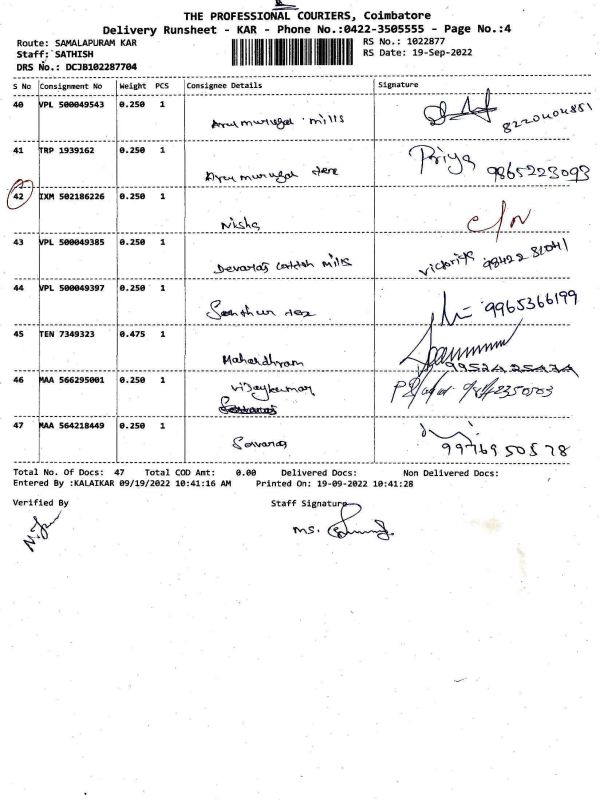 THE PROFESSIONAL COURIERS, Coimbatore
Delivery Runsheet - KAR - Phone No.:0422-3505555 - Page No.:4
Route: SAMALAPURAM KAR RS No.: 1022877
Staff: SATHISH RS Date: 19-Sep-2022
DRS No.: DCJB102287704
S No Consignment No Weight PCS Consignee Details Signature
40 VPL 500049543 0.250 1
Arumurugal mills 8220404851
41 TRP 1939162 0.250 1
Arumurugal tex Priya 9865223093
42 IXM 502186226 0.250 1
Nisha C/N
43 VPL 500049385 0.250 1
Devaraj mills 98422 81041
44 VPL 500049397 0.250 1
tex 9965366199
45 TEN 7349323 0.475 1
Mahardhram 9952425434
46 MAA 566295001 0.250 1
Vijaykumar
47 MAA 564218449 0.250 1
9976950578
Total No. Of Docs: 47 Total COD Amt: 0.00 Delivered Docs: Non Delivered Docs:
Entered By :KALAIKAR 09/19/2022 10:41:16 AM Printed On: 19-09-2022 10:41:28
Verified By Staff Signature
ms.